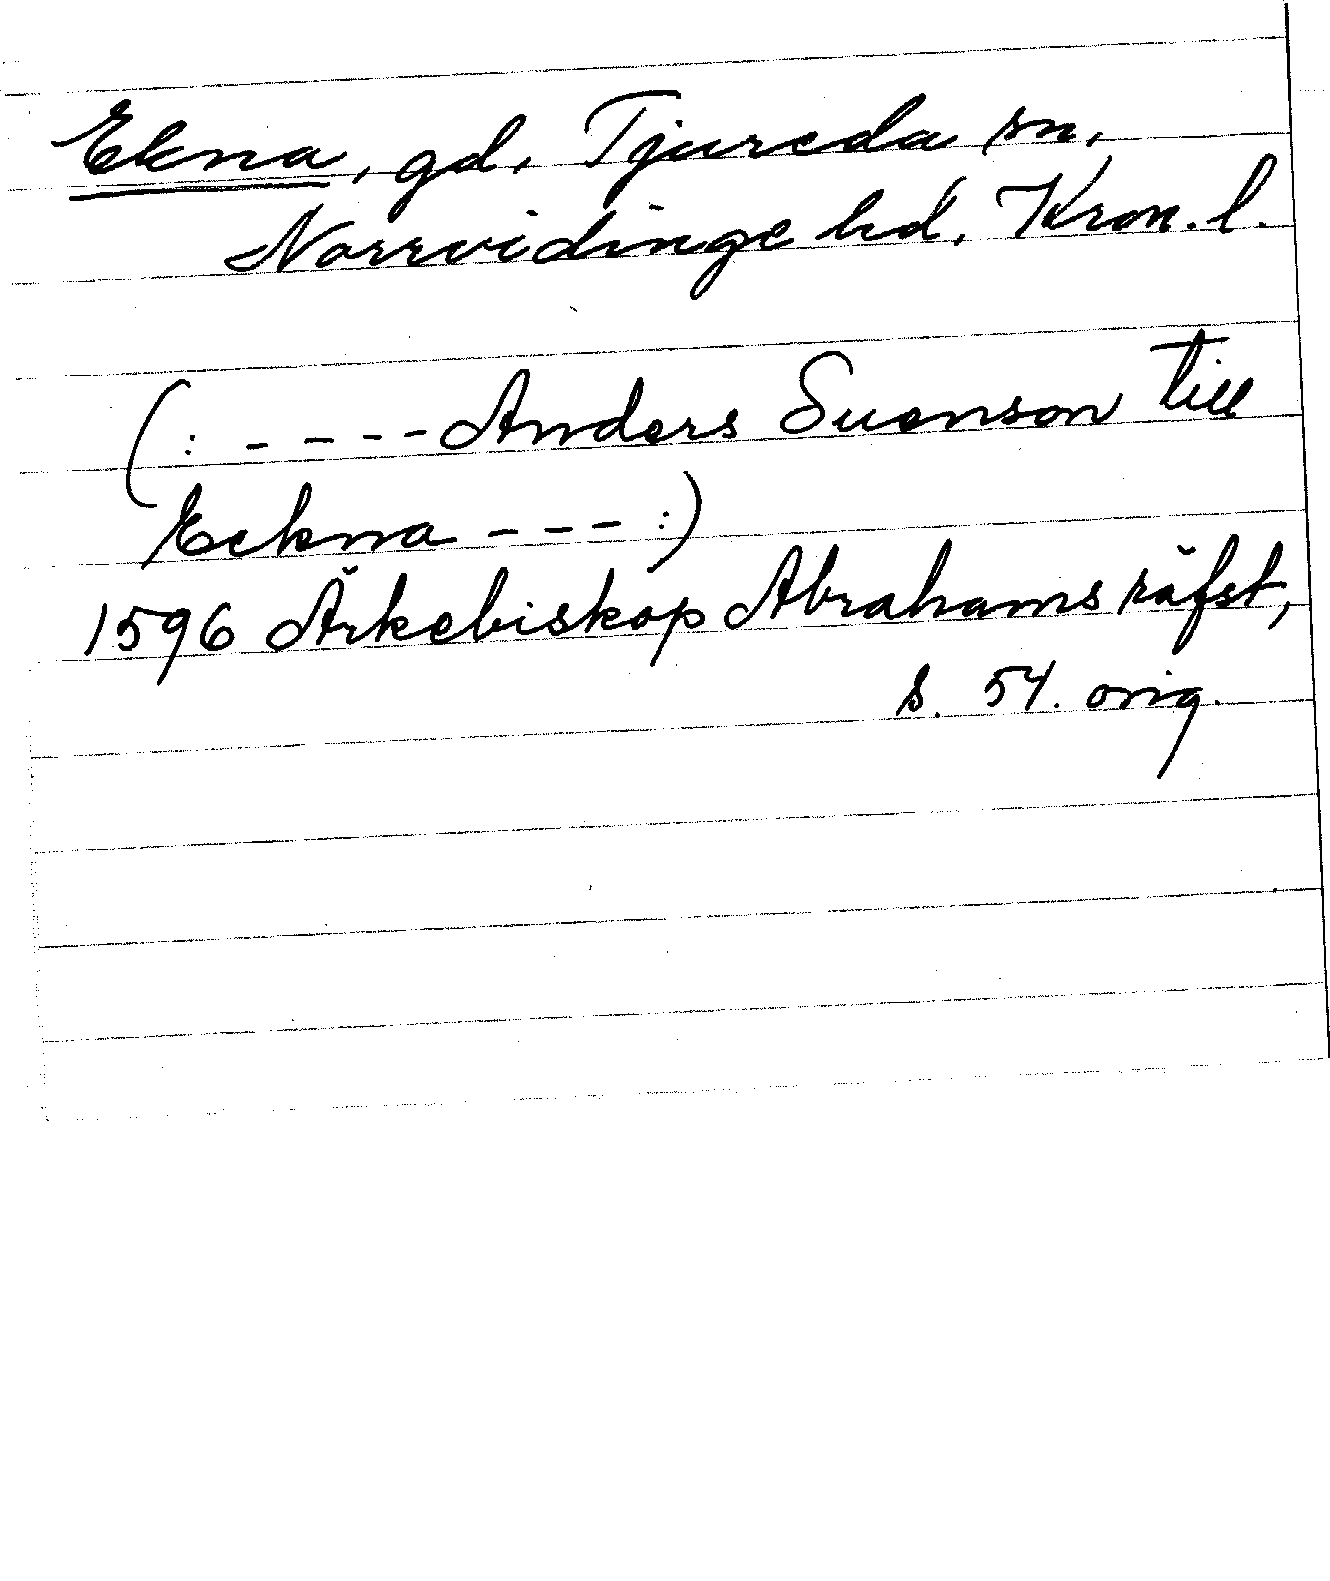 Ekna, gd, Tjureda sn,
Norrvidinge hd, Kron. l.
(: - - - - Anders Suenson till
Eekna - - - :)
1596 Ärkebiskop Abrahams räfst,
s. 54. orig.